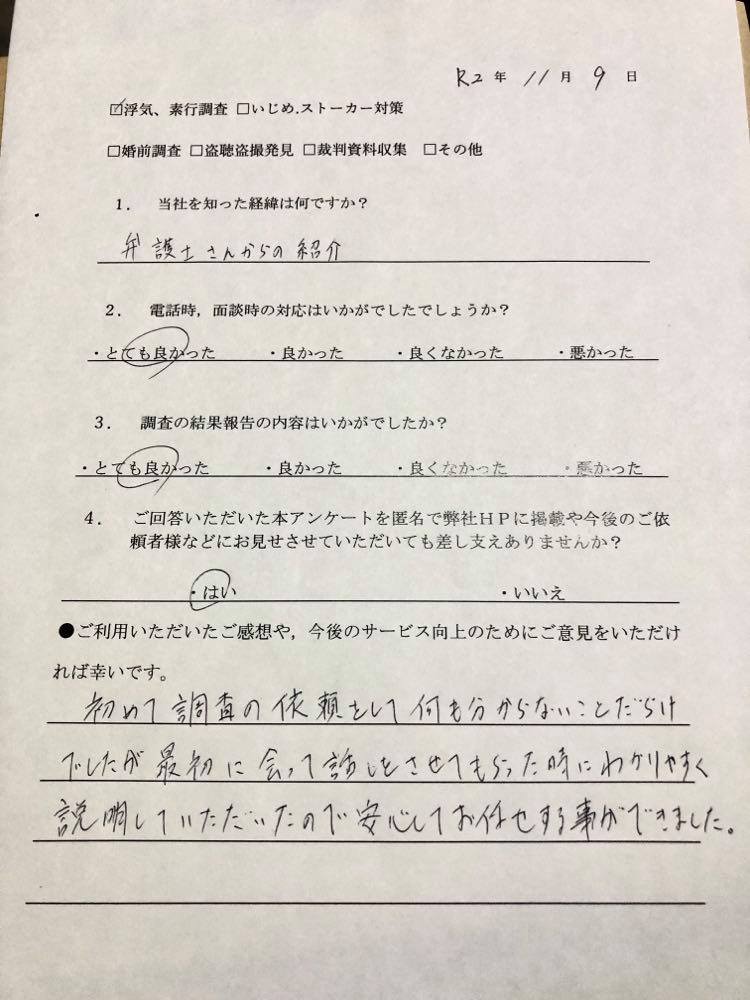 R2年 11月 9日
☑浮気、素行調査 □いじめ.ストーカー対策
□婚前調査 □盗聴盗撮発見 □裁判資料収集 □その他
1. 当社を知った経緯は何ですか？
弁護士さんからの紹介
2. 電話時，面談時の対応はいかがでしたでしょうか？
・とても良かった ・良かった ・良くなかった ・悪かった
3. 調査の結果報告の内容はいかがでしたか？
・とても良かった ・良かった ・良くなかった ・悪かった
4. ご回答いただいた本アンケートを匿名で弊社ＨＰに掲載や今後のご依
頼者様などにお見せさせていただいても差し支えありませんか？
・はい ・いいえ
●ご利用いただいたご感想や，今後のサービス向上のためにご意見をいただけ
れば幸いです。
初めて調査の依頼をして何も分からないことだらけ
でしたが最初に会って話しをさせてもらった時にわかりやすく
説明していただいたので安心してお任せする事ができました。